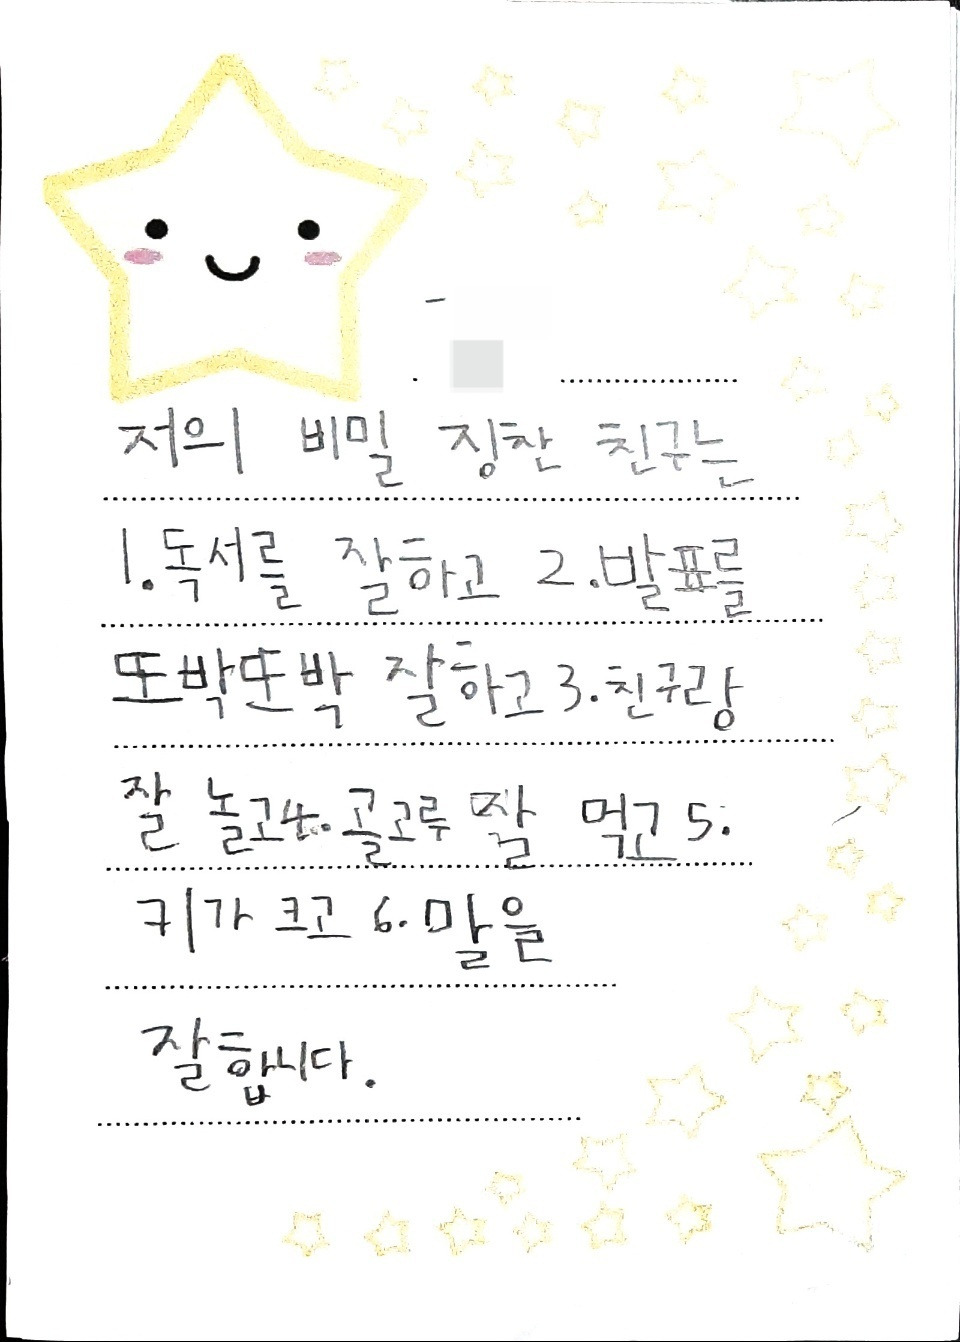 저의 비밀 징찬 친구는
1.독서를 잘하고 2.발표를
또박또박 잘하고 3.친구랑
잘 놀고4.골고루 잘 먹고 5.
키가 크고 6.말을
잘합니다.